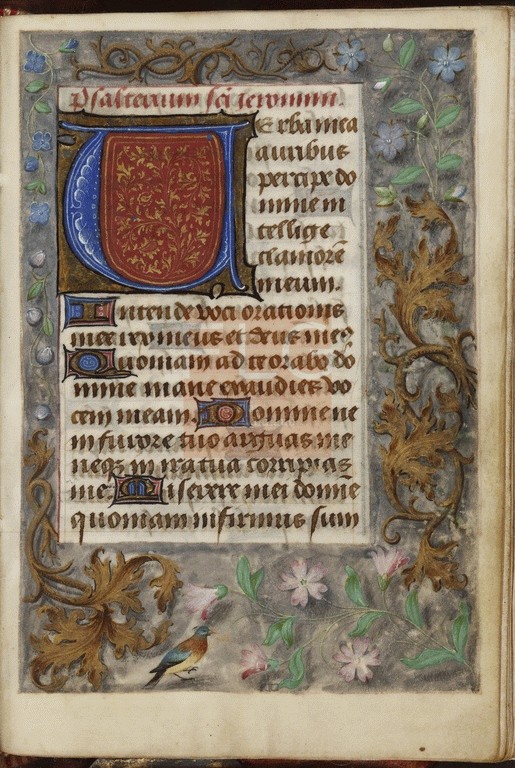 Psalterium sci ieronimi.
Verba mea
auribus
percipe do
mine in
tellige
clamorē
meum.
Intende voci orationis
mee rex meus et deus meꝰ
Quoniam ad te orabo do
mine mane exaudies vo
cem meam. Domine ne
in furore tuo arguas me
neqꝫ in ira tua corripias
me. Miserere mei domīe
quoniam infirmus sum